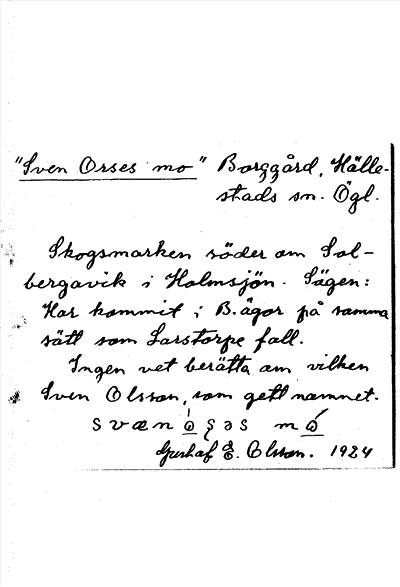 "Sven Orses mo" Borggård, Hälle-
stads sn. Ögl.
Skogsmarken söder om Sol-
bergavik i Holmsjön. Sägen:
Har kommit i B. ägor på samma
sätt som Larstorpe fall.
Ingen vet berätta om vilken
Sven Olsson, som gett namnet.
Gustaf E. Olsson. 1924